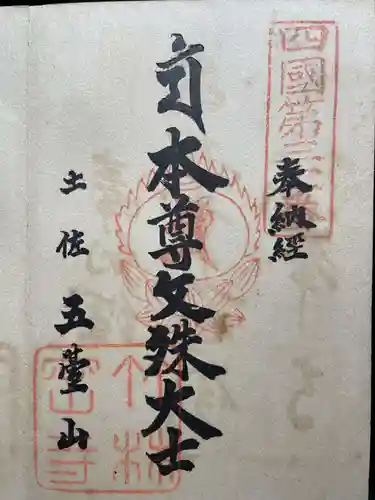 四國第三
奉納經
本尊文殊大士
土佐 五臺山
竹林
密寺